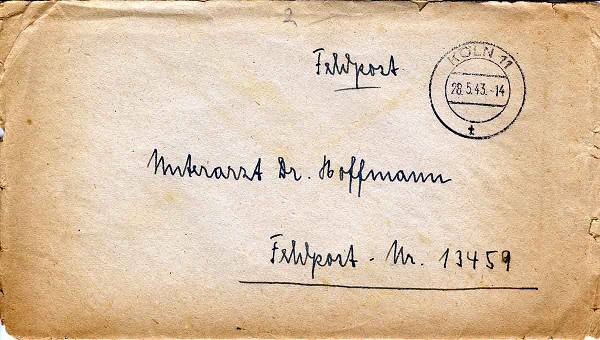 2
Feldpost
KÖLN 11
28.5.43.-14
t
Unterarzt Dr. Hoffmann
Feldpost - Nr. 13459